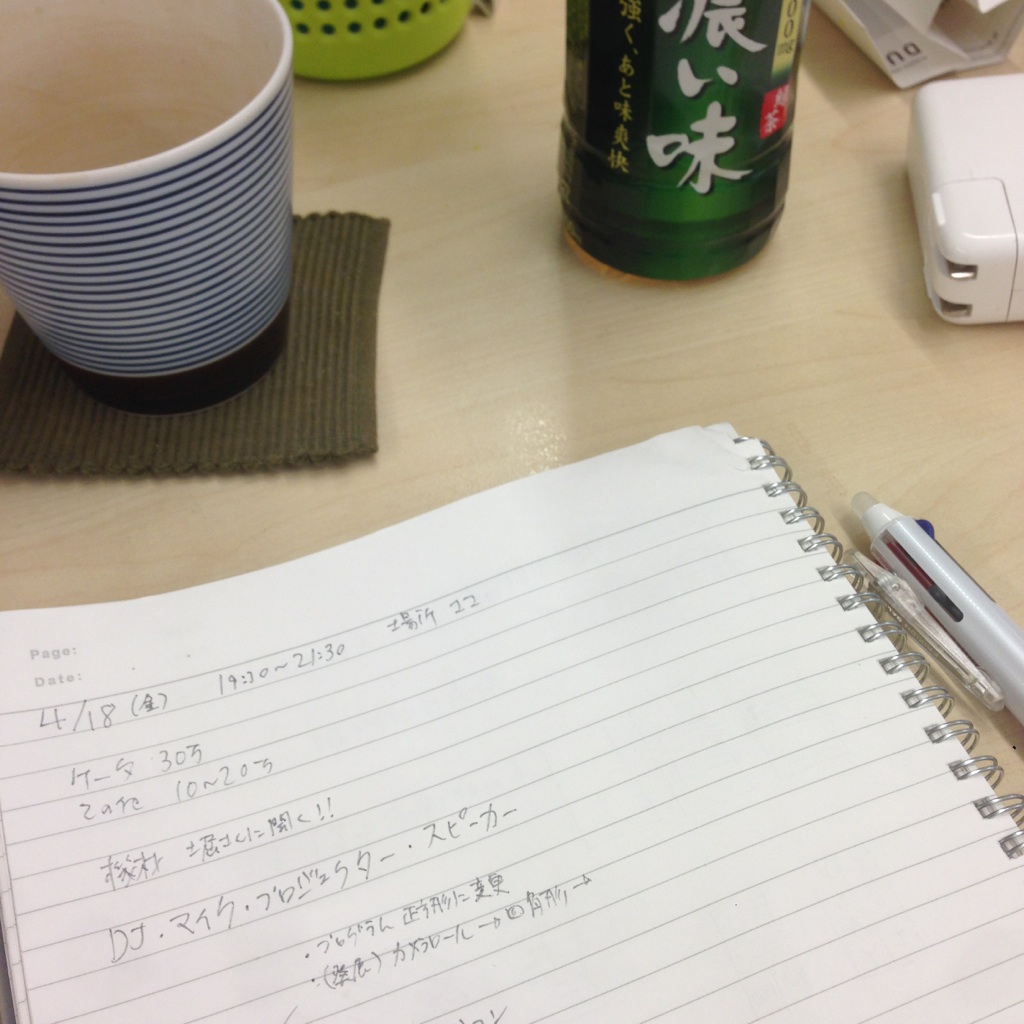 濃い味
強く、あと味爽快
00mg
茶
Page:
Date:
4/18 (金) 19:30~21:30 場所 ココ
ケータ 30万
その他 10~20万
機材 土屋さんに聞く!!
DJ・マイク・プロジェクター・スピーカー
・プログラム 正方形に変更
・(発展) カメラロール→四角形→